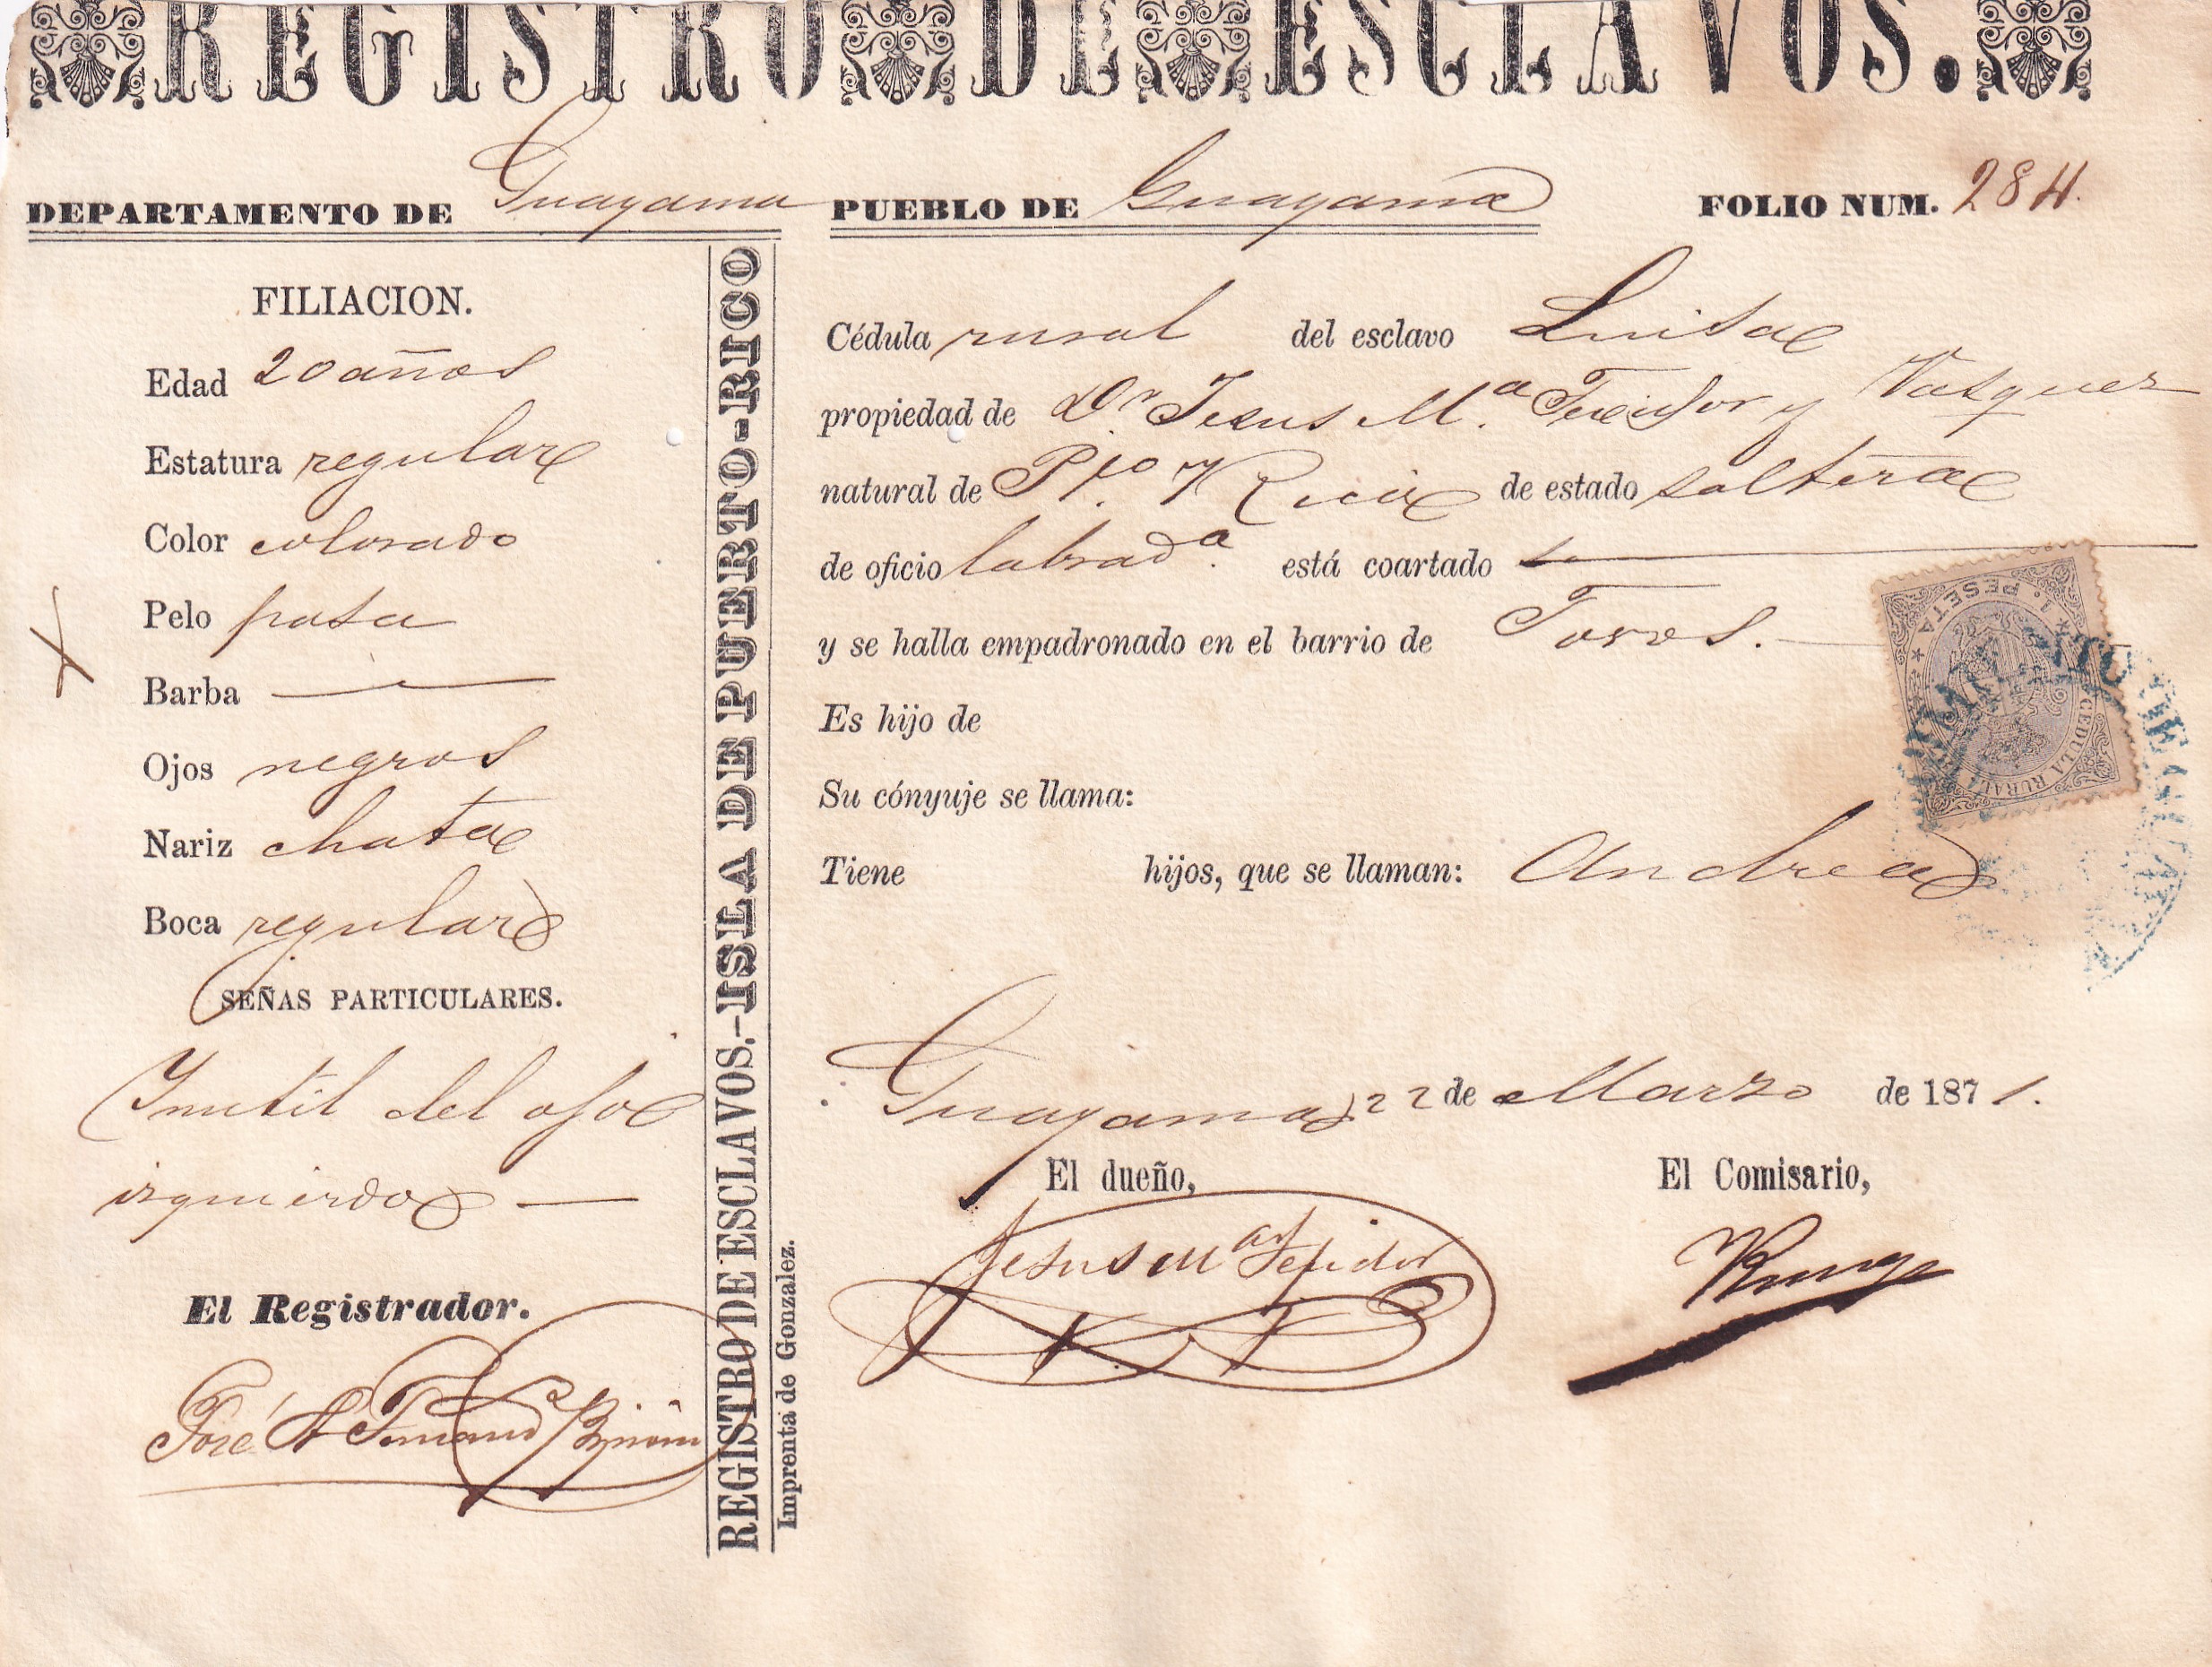 REGISTRO DE ESCLAVOS.
DEPARTAMENTO DE Guayama PUEBLO DE Guayama FOLIO NUM. 284.
FILIACION.
Edad 20 años
Estatura regular
Color colorado
Pelo pasa
Barba —
Ojos negros
Nariz chata
Boca regular
SEÑAS PARTICULARES.
Inutil del ojo
izquierdo —
El Registrador.
José A
REGISTRO DE ESCLAVOS.-ISLA DE PUERTO-RICO
Imprenta de Gonzalez.
Cédula rural del esclavo Luisa
propiedad de Dn. Jesus Ma. Texidor y Vasquez
natural de Pto. Rico de estado soltera
de oficio labrada. está coartado —
y se halla empadronado en el barrio de
Es hijo de
Su cónyuje se llama:
Tiene hijos, que se llaman: Andrea
1. PESETA
CEDULA RURAL
Guayama 22 de Marzo de 1871.
El dueño, El Comisario,
Jesus Ma Texidor